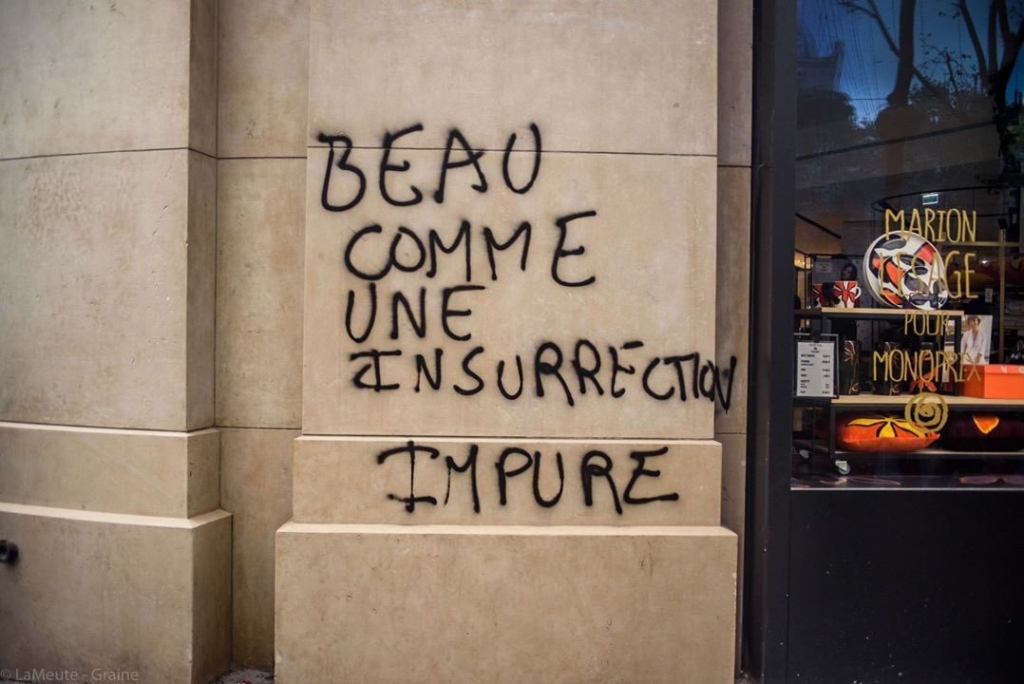 BEAU
COMME
UNE
INSURRECTION
IMPURE
MARION
POUR
MONOPRIX
© LaMeute - Graine